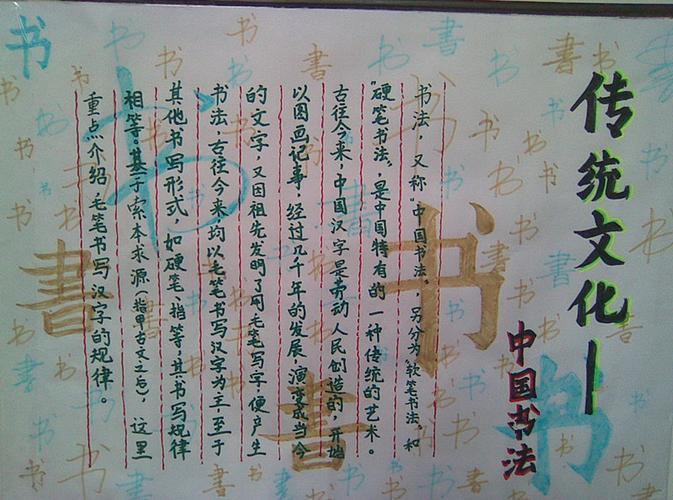 传统文化—
中国书法
书法，又称“中国书法”，另分为“软笔书法”和
“硬笔书法，是中国特有的一种传统的艺术。
古往今来，中国汉字是劳动人民创造的，开始
以图画记事，经过几千年的发展，演变成当今
的文字，又因祖先发明了用毛笔写字，便产生
书法，古往今来，均以毛笔书写汉字为主，至于
其他书写形式，如硬笔、指等，其书写规律
相等。基于索本求源（指甲古文之后），这里
重点介绍毛笔书写汉字的规律。